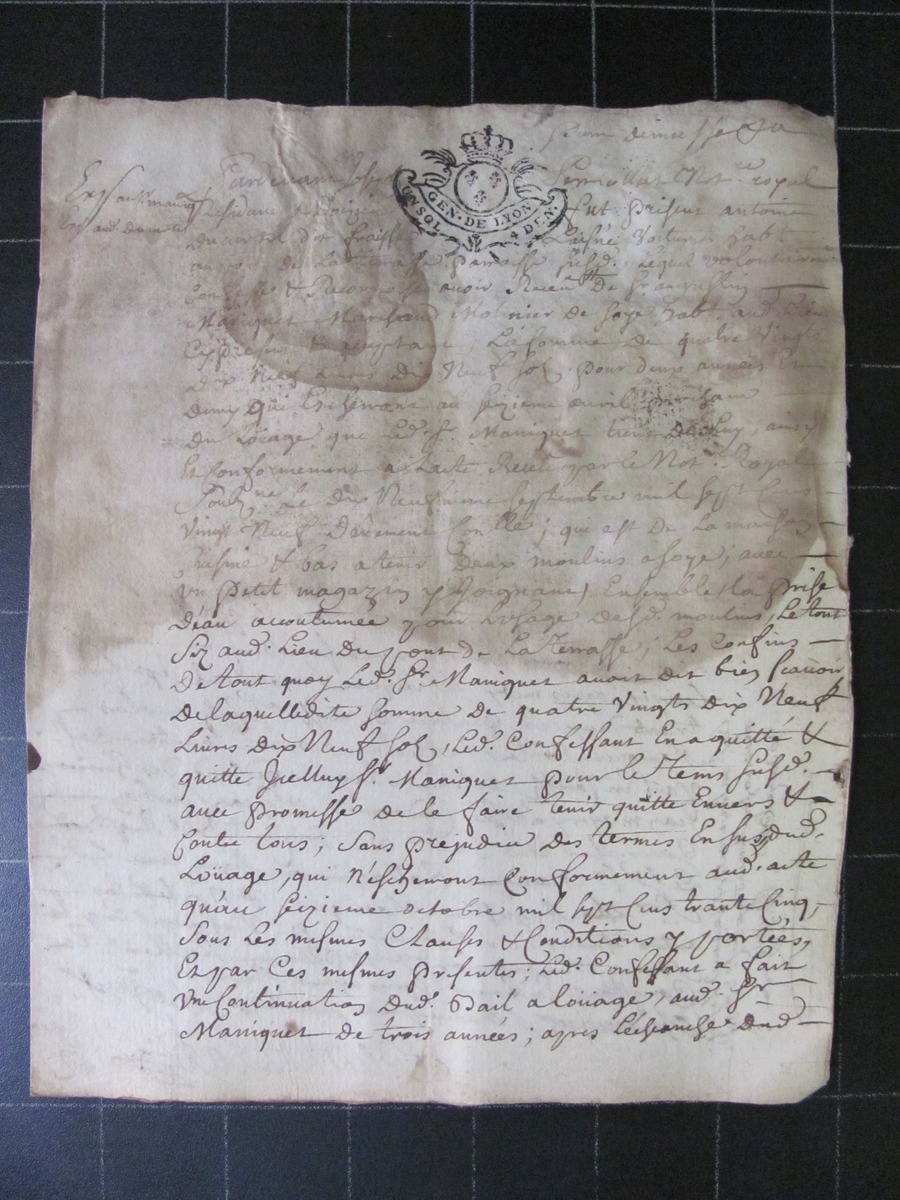 GEN. DE LYON
UN SOL 4 DEN.
Pardevant
Not.re royal
Fut présent antoine
voiturier habt
avoir Receu de Sr
Maniquet Marchand Molinier de soye habt. aud. Lieu
Cy present & acceptant, La somme de quatre vingts
Dix Neuf Livres dix Neuf sols pour deux années Et
demy qui Escherront au seizieme avril prochain
Du Loüage que Led. Sr. Maniquet tient de Luy, ainsy
Et Conformement a L'acte Receu par le Not.re Royal
Soub.né Le dix Neufvieme Septembre mil sept Cens
Vingt Neuf Deüement Con.llé ; que est de La maison
cuisine & bas a tenir deux moulins a soye, avec
un Petit magazin y Joignant, Ensemble La prise
d'eau accoutumée pour L'usage desd. moulins, Le tout
Siz aud. Lieu du pont de La Terrasse, Les Confins
De tout quoy Led. Sr. Maniquet auroit dit bien scavoir
De laquelle dite somme de quatre Vingts Dix Neuf
Livres Dix Neuf sols, Led. Confessant En a quitté &
quitte Icelluy Sr. Maniquet pour le Tems susd.
avec promesse de le faire tenir quitte Envers &
Contre tous, Sans prejudice Des termes En sus dud.
Loüage, qui N'escherront Conformement aud. acte
qu'au seizieme octobre mil sept Cens trante Cinq,
Sous Les mesmes Clauses & Conditions y portées,
Et par Ces mesmes presentes ; Led. Confessant a fait
Une Continuation dud. Bail a Loüage, aud. Sr
Maniquet de trois années ; apres L'escheanse Dud